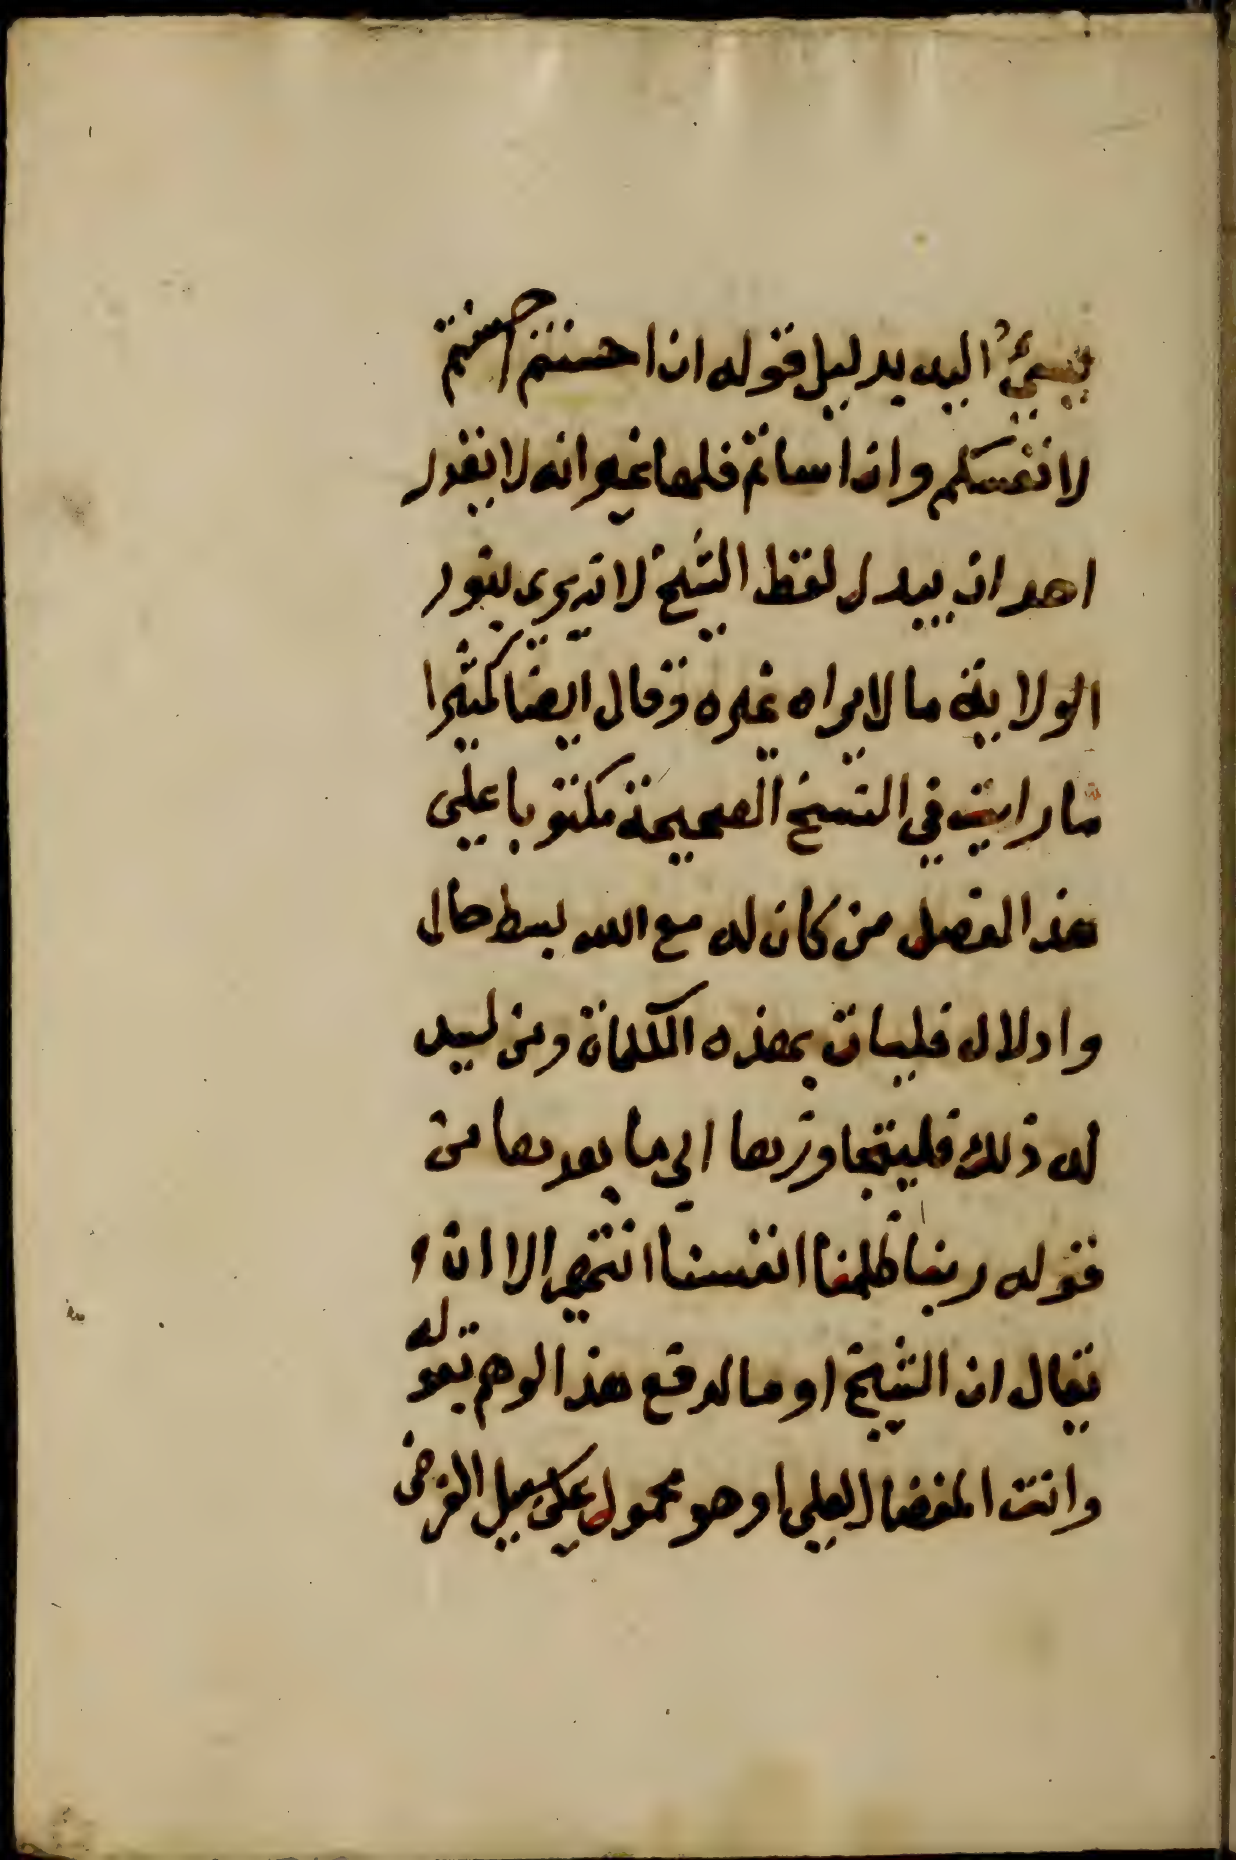 يسيئ اليه بدليل قوله ان احسنتم احسنتم
لانفسكم وان اساتم فلها غير انه لا يقدر
احد ان يبدل لفظ الشيخ لانه يرى بنور
الولاية ما لا يراه غيره وقال ايضا كثيرا
ما رايت في النسخ الصحيحة مكتوبا على
هذا الفصل من كان له مع الله بسط حال
وادلال فليات بهذه الكلمات ومن ليس
له ذلك فليتجاوزها الى ما بعدها من
قوله ربنا ظلمنا انفسنا انتهى الا ان
يقال ان الشيخ اوما لدفع هذا الوهم بقوله
وانت المفضال العلى او هو محمول على سبيل الفرض